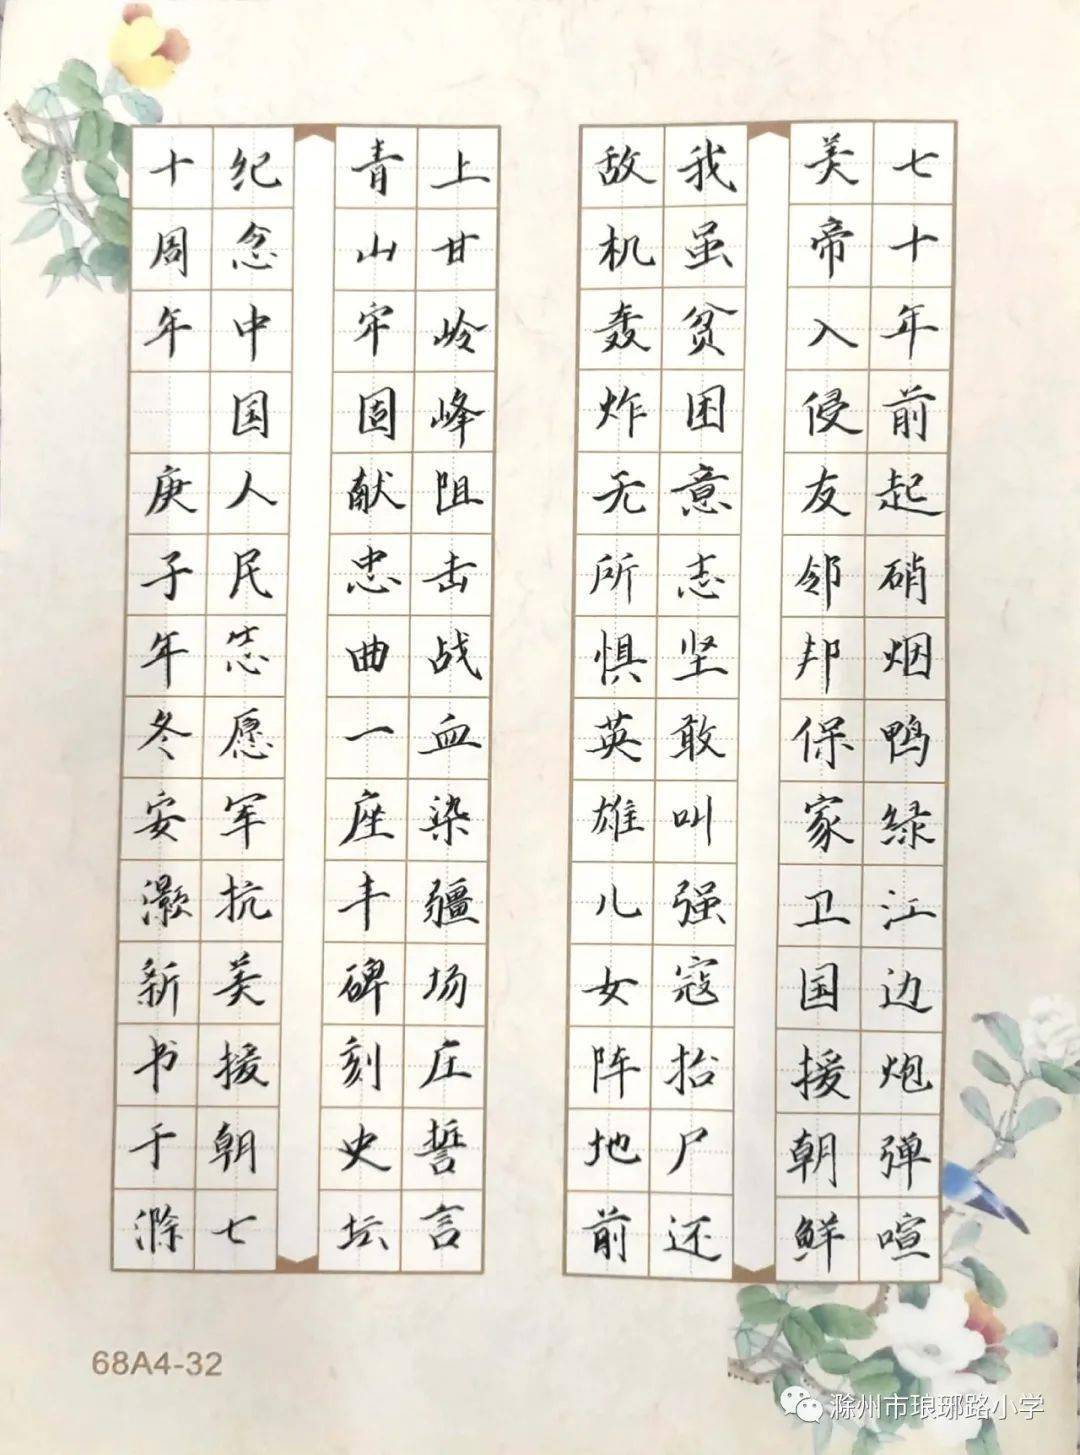 七十年前起硝烟鸭绿江边炮弹喧
美帝入侵友邻邦保家卫国援朝鲜
我虽贫困意志坚敢叫强寇抬尸还
敌机轰炸无所惧英雄儿女阵地前
上甘岭峰阻击战血染疆场庄誓言
青山牢固献忠曲一座丰碑刻史坛
纪念中国人民志愿军抗美援朝七
十周年 庚子年冬安灏新书于滁
68A4-32
滁州市琅琊路小学